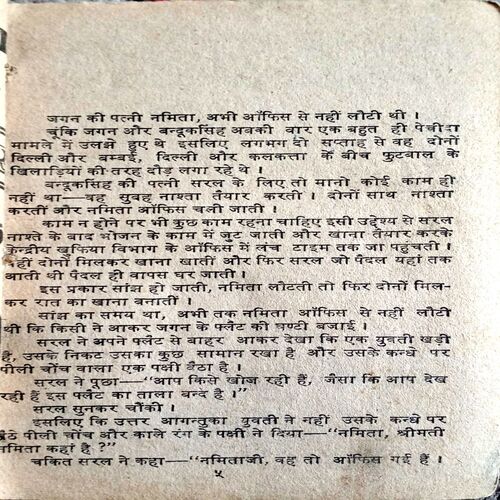 जगन की पत्नी नमिता, अभी ऑफिस से नहीं लौटी थी ।
चूंकि जगन और बन्दूकसिंह अबकी बार एक बहुत ही पेचीदा
मामले में उलझे हुए थे इसलिए लगभग दो सप्ताह से वह दोनों
दिल्ली और बम्बई, दिल्ली और कलकत्ता के बीच फुटबाल के
खिलाड़ियों की तरह दौड़ लगा रहे थे ।
बन्दूकसिंह की पत्नी सरल के लिए तो मानो कोई काम ही
नहीं था—वह सुबह नाश्ता तैयार करती । दोनों साथ नाश्ता
करतीं और नमिता ऑफिस चली जाती ।
काम न होने पर भी कुछ काम रहना चाहिए इसी उद्देश्य से सरल
नाश्ते के बाद भोजन के काम में जुट जाती और खाना तैयार करके
केन्द्रीय खुफिया विभाग के ऑफिस में लंच टाइम तक जा पहुंचती ।
वहीं दोनों मिलकर खाना खातीं और फिर सरल जो पैदल यहां तक
आती थी पैदल ही वापस घर जाती ।
इस प्रकार सांझ हो जाती, नमिता लौटती तो फिर दोनों मिल-
कर रात का खाना बनातीं ।
सांझ का समय था, अभी तक नमिता ऑफिस से नहीं लौटी
थी कि किसी ने आकर जगन के फ्लैट की घण्टी बजाई ।
सरल ने अपने फ्लैट से बाहर आकर देखा कि एक युवती खड़ी
है, उसके निकट उसका कुछ सामान रखा है और उसके कन्धे पर
पीली चोंच वाला एक पक्षी बैठा है ।
सरल ने पूछा—“आप किसे खोज रही हैं, जैसा कि आप देख
रही हैं इस फ्लैट का ताला बन्द है ।”
सरल सुनकर चौंकी ।
इसलिए कि उत्तर आगन्तुका युवती ने नहीं उसके कन्धे पर
बैठे पीली चोंच और काले रंग के पक्षी ने दिया—“नमिता, श्रीमती
नमिता कहां है ?”
चकित सरल ने कहा—“नमिताजी, वह तो ऑफिस गई हैं ।
५